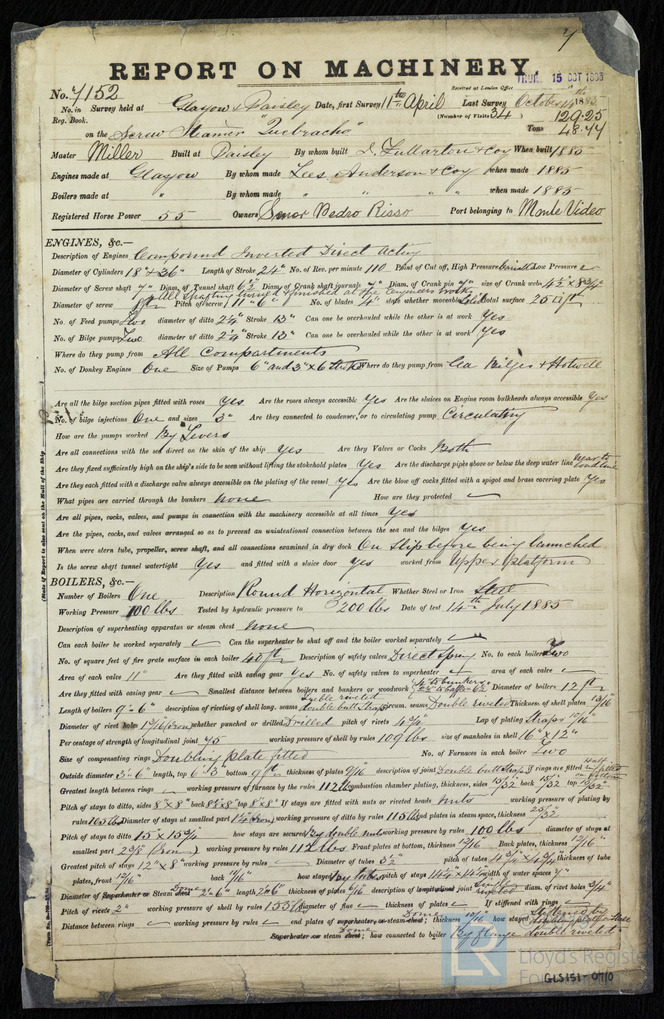 7
REPORT ON MACHINERY.
No. 7152
Received at London Office
THUR. 15 OCT 1885
No. in Survey held at Glasgow & Paisley Date, first Survey 11th April Last Survey October 14th 1885
Reg. Book. (Number of Visits 34)
on the Screw Steamer "Quebracho" Tons 129.25 48.44
Master Miller Built at Paisley By whom built J. Fullarton & Coy When built 1885
Engines made at Glasgow By whom made Lees Anderson & Coy when made 1885
Boilers made at " By whom made " " " " when made 1885
Registered Horse Power 55 Owners Senor Pedro Risso Port belonging to Monte Video
ENGINES, &c.—
Description of Engines Compound Inverted Direct Acting
Diameter of Cylinders 18" & 36" Length of Stroke 24" No. of Rev. per minute 110 Point of Cut off, High Pressure Low Pressure
Diameter of Screw shaft 7" Diam. of Tunnel shaft 6½" Diam. of Crank shaft journals 7" Diam. of Crank pin 7" size of Crank webs
All shafting turned & finished at the Engineers works
Diameter of screw Pitch of screw 11'-6" No. of blades 4 state whether moveable Solid total surface 25 sq ft
No. of Feed pumps Two diameter of ditto 2¼" Stroke 13" Can one be overhauled while the other is at work Yes
No. of Bilge pumps Two diameter of ditto 2¼" Stroke 13" Can one be overhauled while the other is at work Yes
Where do they pump from All Compartments
No. of Donkey Engines One Size of Pumps 6" and 3" x 6" Stroke Where do they pump from Sea Bilges & Hotwell
Are all the bilge suction pipes fitted with roses Yes Are the roses always accessible Yes Are the sluices on Engine room bulkheads always accessible Yes
No. of bilge injections One and sizes 3" Are they connected to condenser, or to circulating pump Circulating
How are the pumps worked By Levers
Are all connections with the sea direct on the skin of the ship Yes Are they Valves or Cocks Both
Are they fixed sufficiently high on the ship's side to be seen without lifting the stokehold plates Yes Are the discharge pipes above or below the deep water line Near to load line
Are they each fitted with a discharge valve always accessible on the plating of the vessel Yes Are the blow off cocks fitted with a spigot and brass covering plate Yes
What pipes are carried through the bunkers None How are they protected
Are all pipes, cocks, valves, and pumps in connection with the machinery accessible at all times Yes
Are the pipes, cocks, and valves arranged so as to prevent an unintentional connection between the sea and the bilges Yes
When were stern tube, propeller, screw shaft, and all connections examined in dry dock On Slip before being launched
Is the screw shaft tunnel watertight Yes and fitted with a sluice door Yes worked from Upper Platform
BOILERS, &c.—
Number of Boilers One Description Round Horizontal Whether Steel or Iron Steel
Working Pressure 100 lbs Tested by hydraulic pressure to 200 lbs Date of test 14th July 1885
Description of superheating apparatus or steam chest None
Can each boiler be worked separately Can the superheater be shut off and the boiler worked separately
No. of square feet of fire grate surface in each boiler 40 ft Description of safety valves Direct Spring No. to each boiler Two
Area of each valve 11" Are they fitted with easing gear Yes No. of safety valves to superheater area of each valve
Are they fitted with easing gear Smallest distance between boilers and bunkers or woodwork Diameter of boilers 12 ft
Length of boilers 9'-6" description of riveting of shell long. seams Treble riveted double butt straps circum. seams Double riveted Thickness of shell plates 13/16"
Diameter of rivet holes whether punched or drilled Drilled pitch of rivets Lap of plating Straps
Per centage of strength of longitudinal joint 75 working pressure of shell by rules 109 lbs size of manholes in shell 16" x 12"
Size of compensating rings Doubling plate fitted No. of Furnaces in each boiler Two
Outside diameter 3'-6" length, top 6'-3" bottom 9 ft thickness of plates 9/16 description of joint Double butt straps if rings are fitted
Greatest length between rings working pressure of furnace by the rules 112 lbs combustion chamber plating, thickness, sides 15/32 back 15/32 top
Pitch of stays to ditto, sides 8" x 8" back 8" x 8" top 8" x 8" If stays are fitted with nuts or riveted heads Nuts working pressure of plating by
rules Diameter of stays at smallest part working pressure of ditto by rules 115 lbs end plates in steam space, thickness
Pitch of stays to ditto how stays are secured By double nuts working pressure by rules 100 lbs diameter of stays at
smallest part working pressure by rules 112 lbs Front plates at bottom, thickness Back plates, thickness
Greatest pitch of stays 12" x 8" working pressure by rules Diameter of tubes 3½" pitch of tubes thickness of tube
plates, front back how stayed pitch of stays width of water spaces
Diameter of Superheater or Steam chest Dome 2'-6" length 2'-6" thickness of plates description of longitudinal joint diam. of rivet holes
Pitch of rivets 2" working pressure of shell by rules 155 lbs diameter of flue thickness of plates If stiffened with rings
Distance between rings working pressure by rules end plates of superheater, or steam chest; Dome thickness how stayed
Superheater or steam chest; Dome how connected to boiler By flange double riveted
Lloyd's Register
Foundation
GLS151-0710